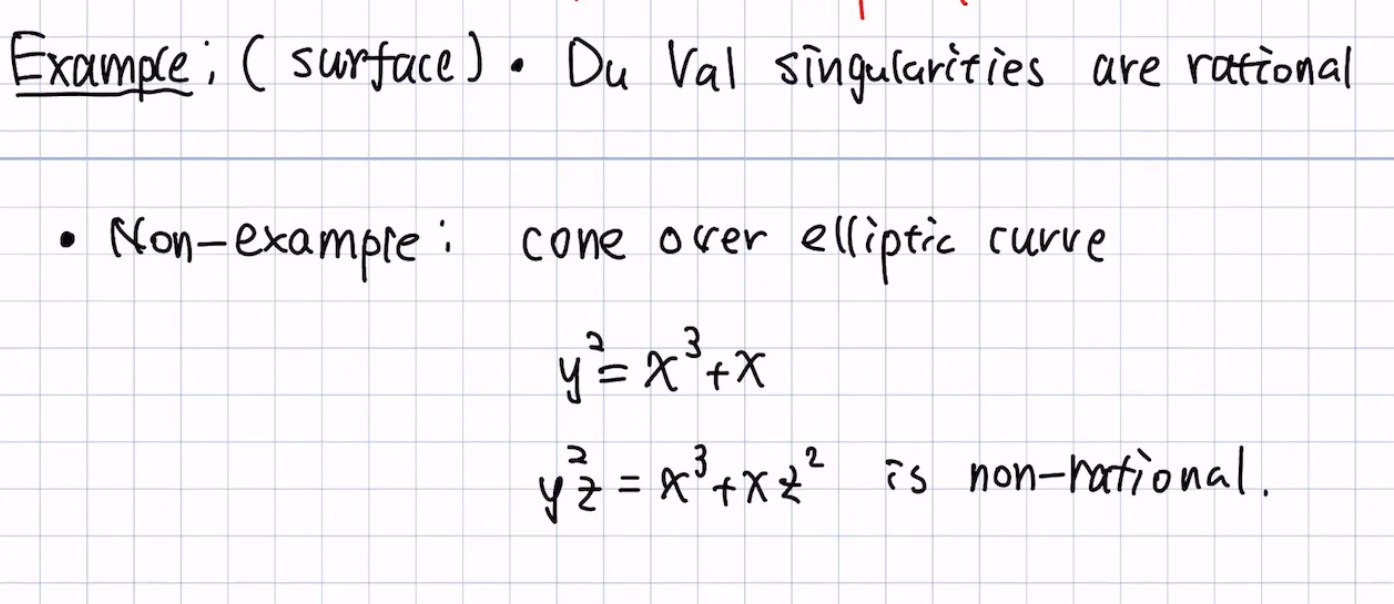 Example: (surface) • Du Val singularities are rational
• Non-example: cone over elliptic curve
y² = x³+x
y²z = x³+xz² is non-rational.